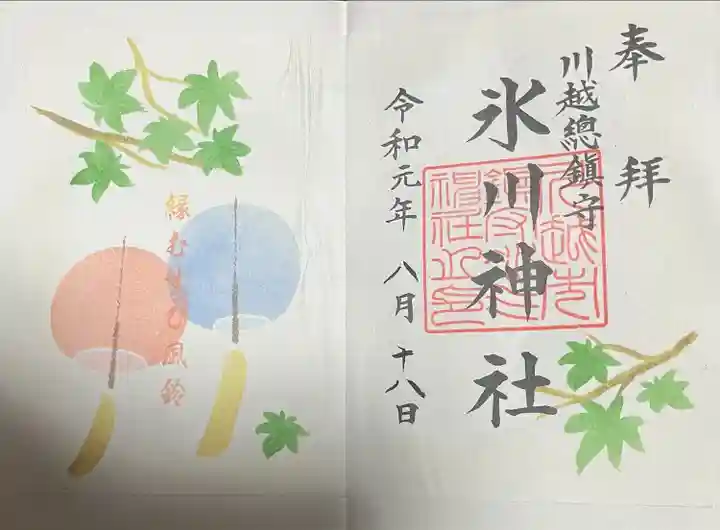 奉拝
川越總鎮守
氷川神社
令和元年 八月 十八日
縁むすび風鈴